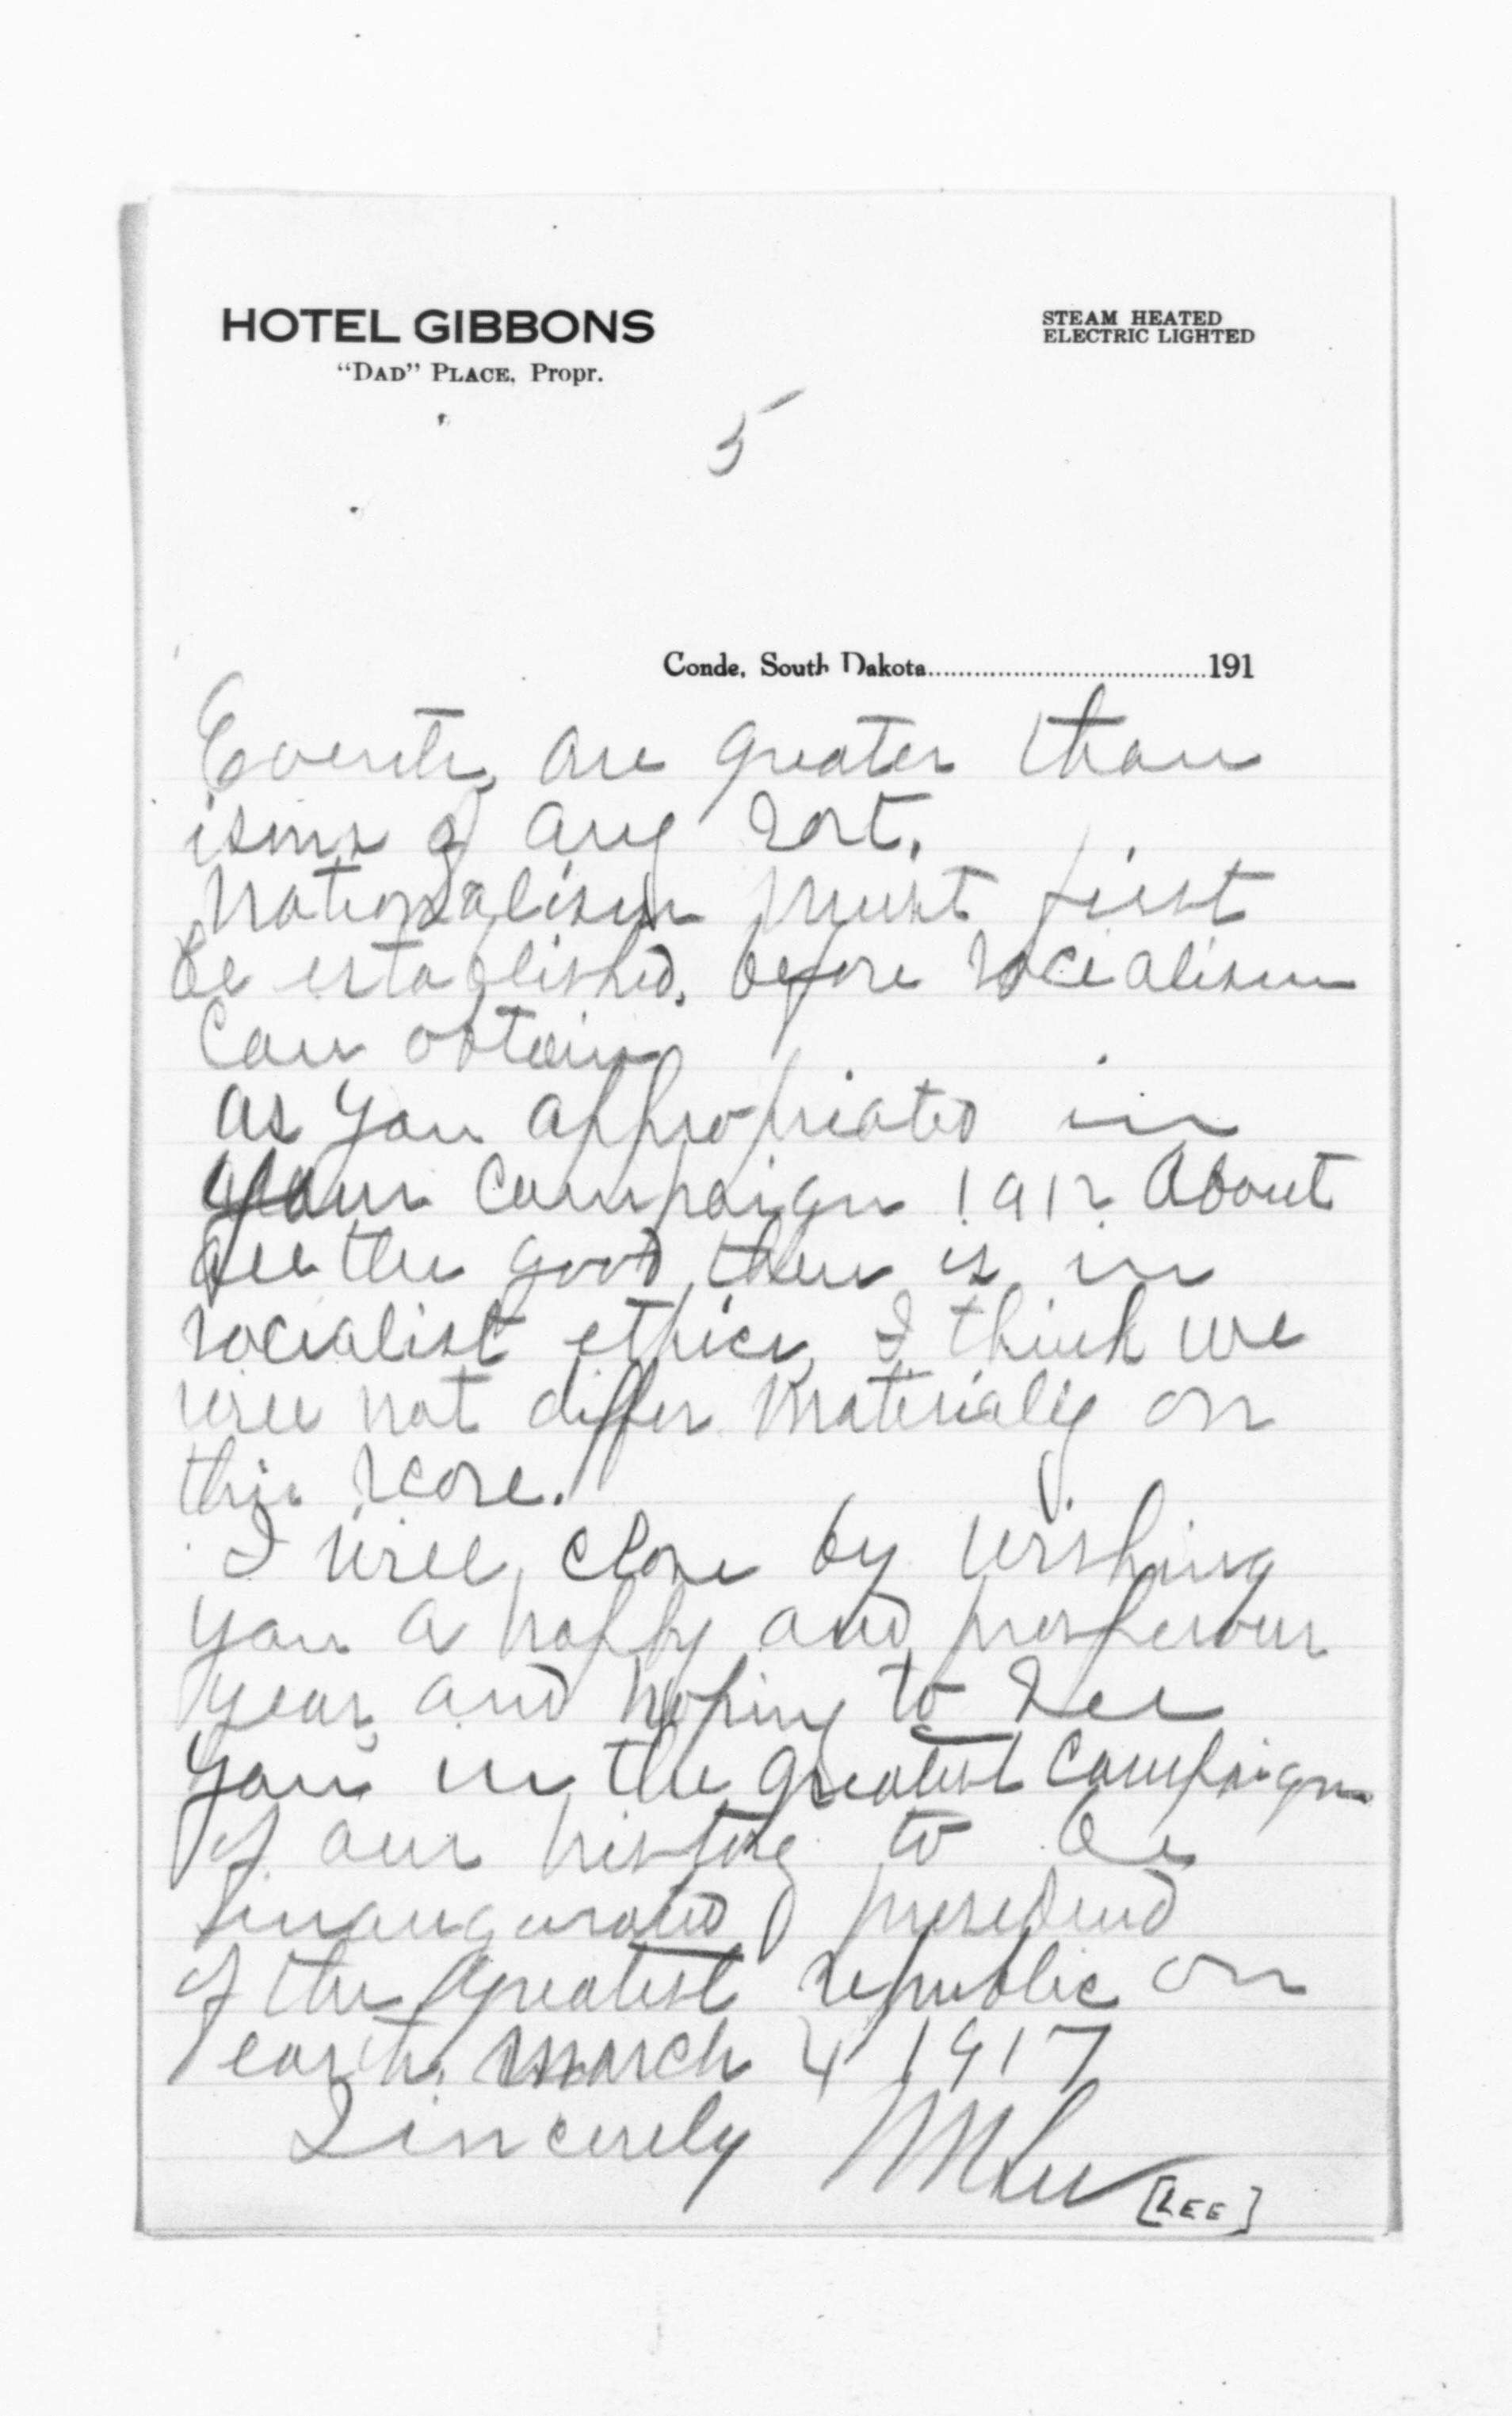 HOTEL GIBBONS
"DAD" PLACE, Propr.
STEAM HEATED
ELECTRIC LIGHTED
5
Conde, South Dakota 191
Events are greater than
isms of any sort.
Nationalism must first
be established, before socialism
can obtain
as you appropriated in
your campaign 1912 about
all the good there is in
socialist ethics, I think we
will not differ materially on
this score.
I will close by wishing
you a happy and prosperous
year and hoping to see
you in the greatest campaign
of our history to be
inaugurated
of the greatest republic on
earth. March 4 1917
Sincerely M Lee
[LEE]